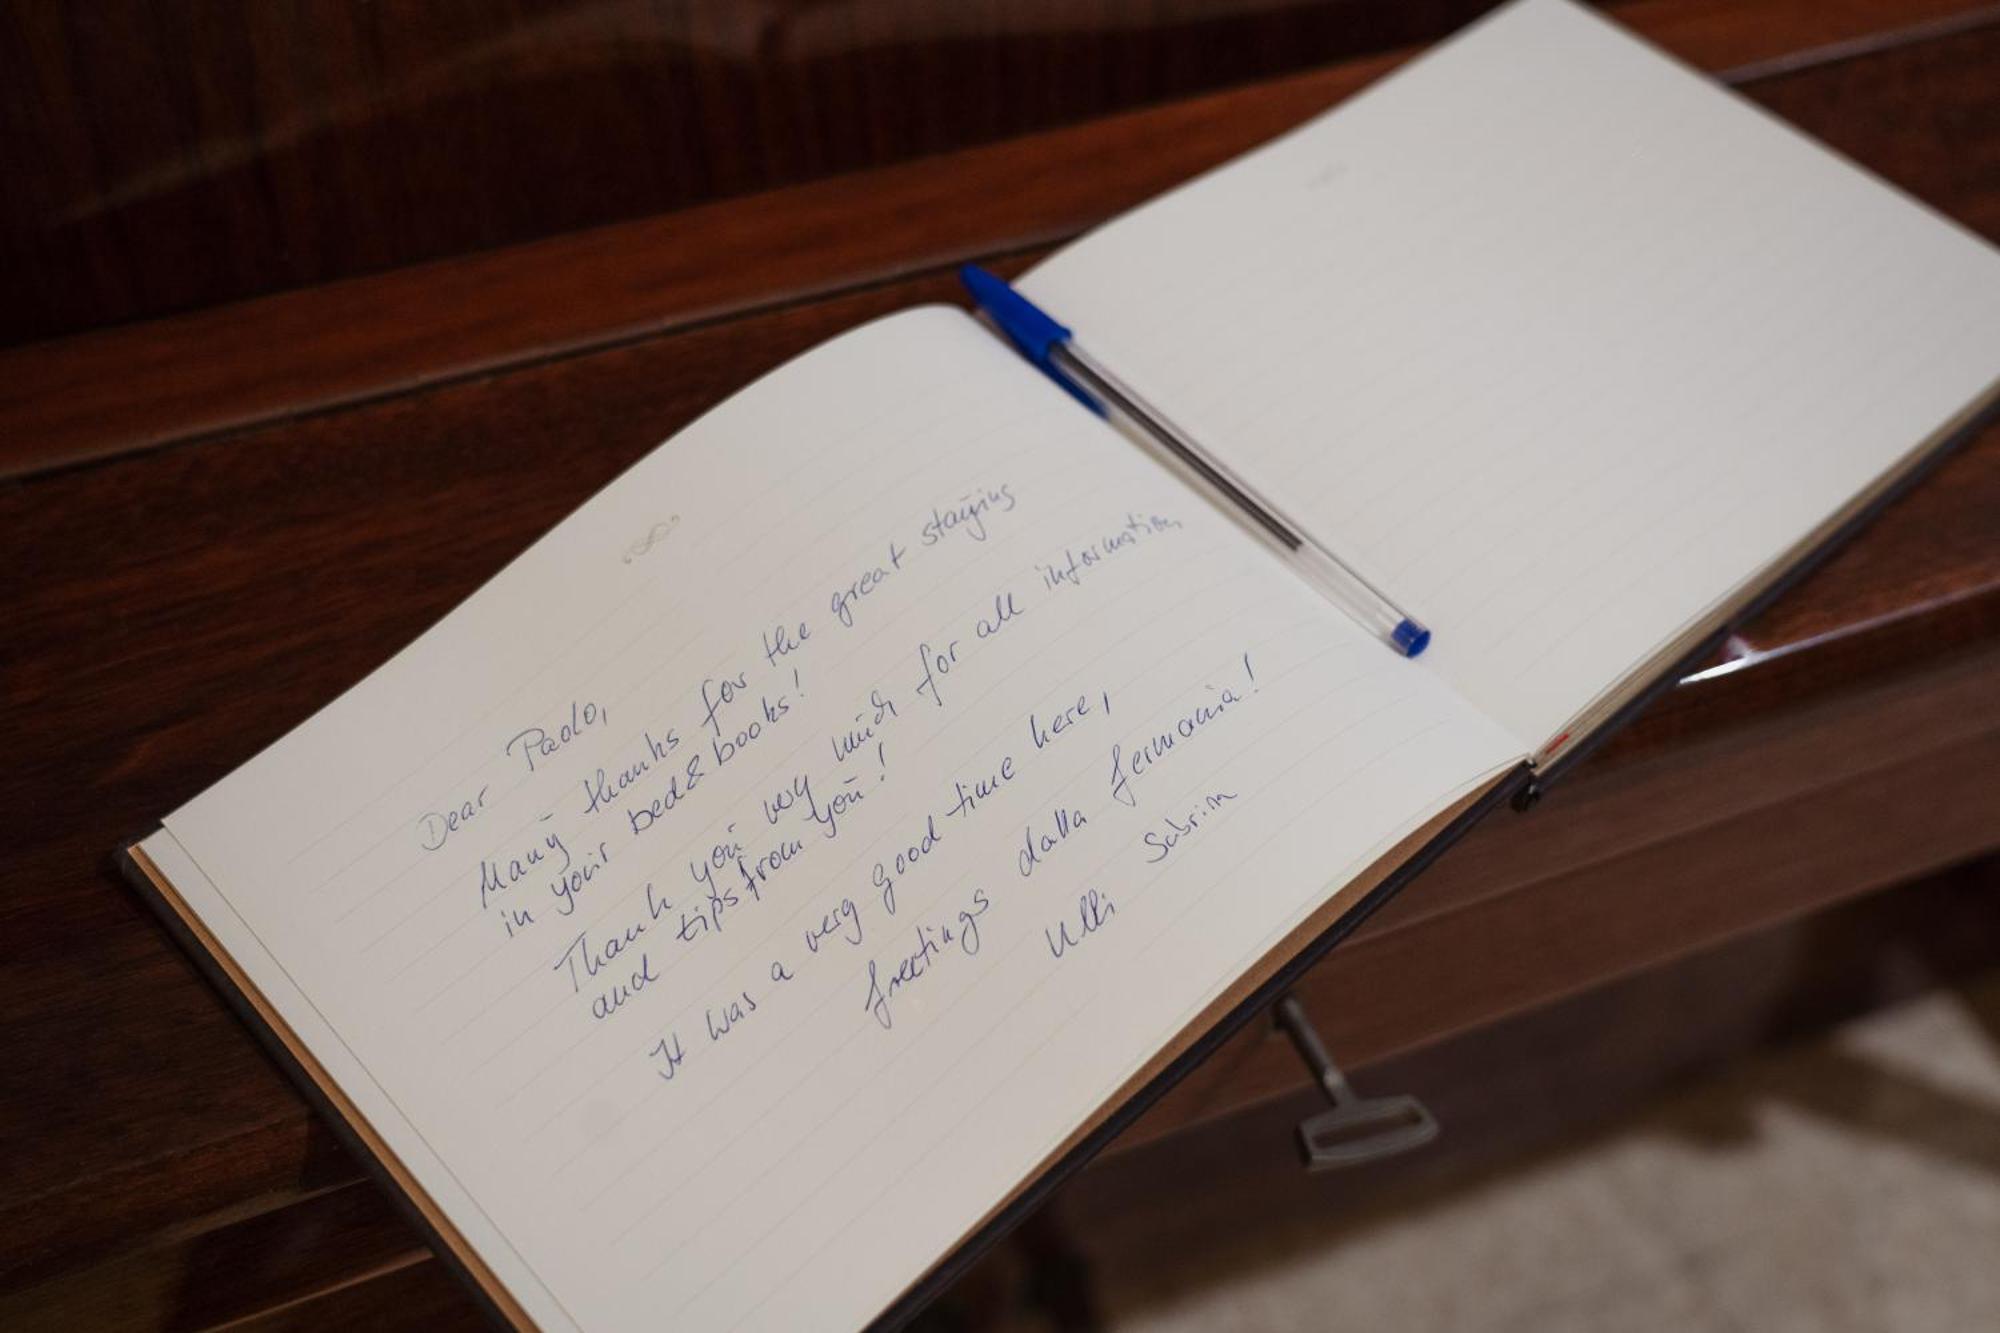 Dear Paolo,
Many thanks for the great staying
in your bed&books!
Thank you very much for all information
and tips from you!
It was a very good time here,
Greetings dalla Germania!
Ulli Sabrina